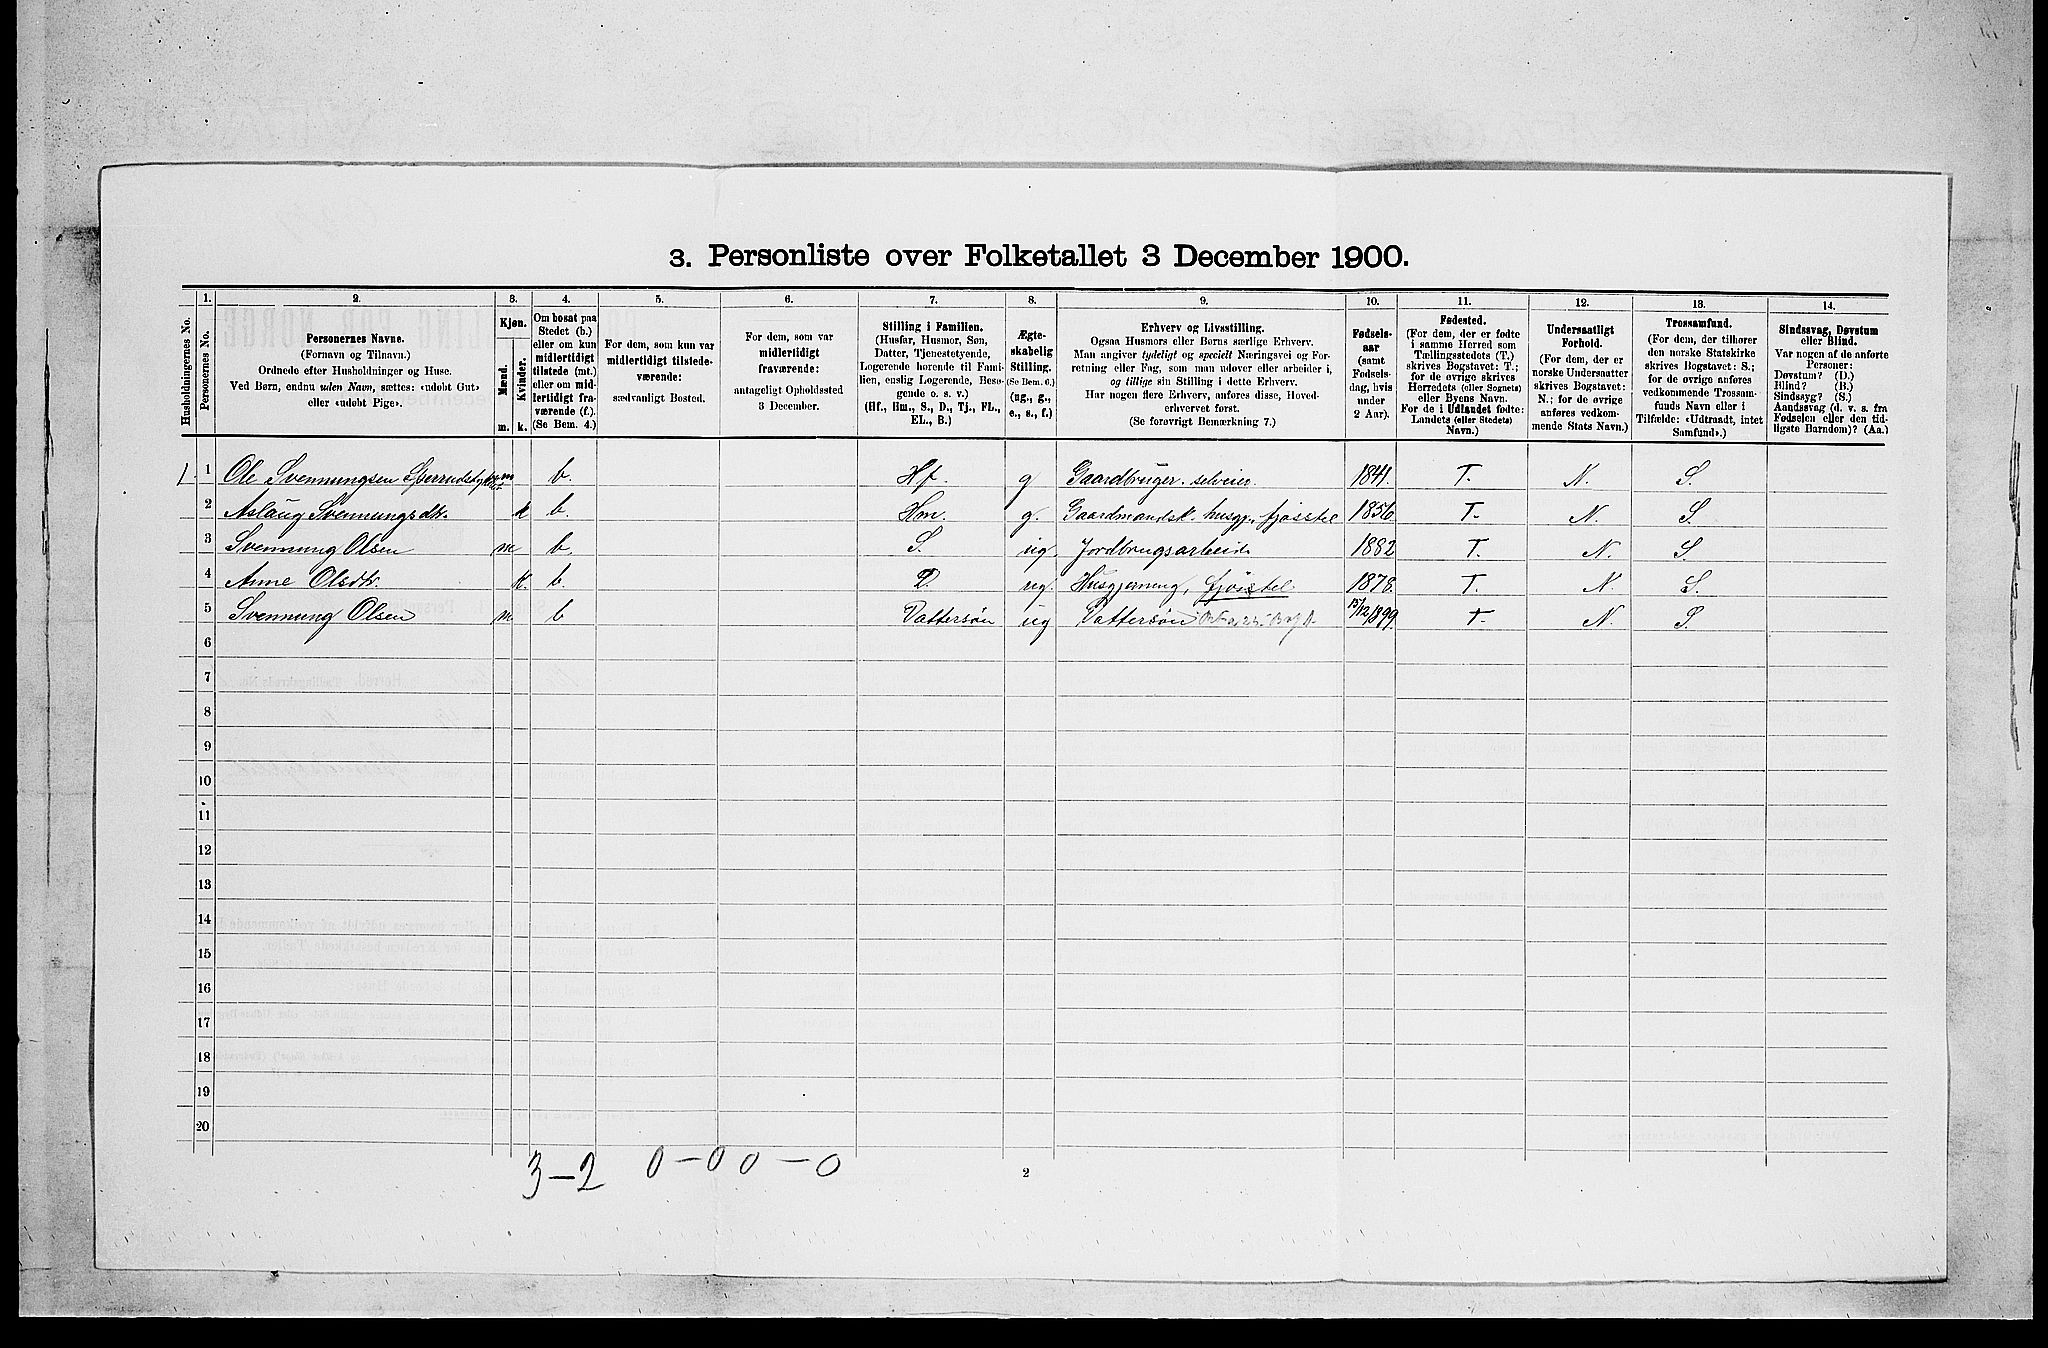 3. Personliste over Folketallet 3 December 1900.
Husholdningernes No.
1.
Personernes No.
2.
Personernes Navne.
(Fornavn og Tilnavn.)
Ordnede efter Husholdninger og Huse.
Ved Børn, endnu uden Navn, sættes: «udøbt Gut»
eller «udøbt Pige».
3.
Kjøn.
Mænd.
Kvinder.
m.
k.
4.
Om bosat paa
Stedet (b.)
eller om kun
midlertidigt
tilstede (mt.)
eller om mid-
lertidigt fra-
værende (f.).
(Se Bem. 4.)
5.
For dem, som kun var
midlertidigt tilstede-
værende:
sædvanligt Bosted.
6.
For dem, som var
midlertidigt
fraværende:
antageligt Opholdssted
3 December.
7.
Stilling i Familien.
(Husfar, Husmor, Søn,
Datter, Tjenestetyende,
Logerende hørende til Fami-
lien, enslig Logerende, Besø-
gende o. s. v.)
(Hf., Hm., S., D., Tj., FL.,
EL., B.)
8.
Ægte-
skabelig
Stilling.
(Se Bem. 6.)
(ug., g.,
e., s., f.)
9.
Erhverv og Livsstilling.
Ogsaa Husmors eller Børns særlige Erhverv.
Man angiver tydeligt og specielt Næringsvei og For-
retning eller Fag, som man udøver eller arbeider i,
og tillige sin Stilling i dette Erhverv.
Har nogen flere Erhverv, anføres disse, Hoved-
erhvervet først.
(Se forøvrigt Bemærkning 7.)
10.
Fødsels-
aar
(samt
Fødsels-
dag, hvis
under
2 Aar).
11.
Fødested.
(For dem, der er fødte
i samme Herred som
Tællingsstedets (T.)
skrives Bogstavet: T.;
for de øvrige skrives
Herredets (eller Sognets)
eller Byens Navn.
For de i Udlandet fødte:
Landets (eller Stedets)
Navn.)
12.
Undersaatligt
Forhold.
(For dem, der er
norske Undersaatter
skrives Bogstavet:
N.; for de øvrige
anføres vedkom-
mende Stats Navn.)
13.
Trossamfund.
(For dem, der tilhører
den norske Statskirke
skrives Bogstavet: S.;
for de øvrige anføres
vedkommende Trossam-
funds Navn eller i
Tilfælde: «Udtraadt, intet
Samfund».)
14.
Sindssvag, Døvstum
eller Blind.
Var nogen af de anførte
Personer:
Døvstum? (D.)
Blind? (B.)
Sindssyg? (S.)
Aandssvag (d. v. s. fra
Fødselen eller den tid-
ligste Barndom)? (Aa.)
1. 1 Ole Svennungsen m b. Hf. g Gaardbruger. selveier. 1841. T. N. S.
2 Aslaug Svennungsdtr. k b. Hm. g. Gaardmandsk. husgj., fjøsstel 1856 T. N. S.
3 Svennung Olsen m b. S. ug. Jordbrugsarbeide 1882 T. N. S.
4 Anne Olsdtr. k. b. D. ug. Husgjerning, fjøsstel. 1878. T. N. S.
5 Svennung Olsen m b Dattersøn ug Dattersøn 15/12 1899. T. N. S.
6
7
8
9
10
11
12
13
14
15
16
17
18
19
20
3-2 0-0 0-0
2